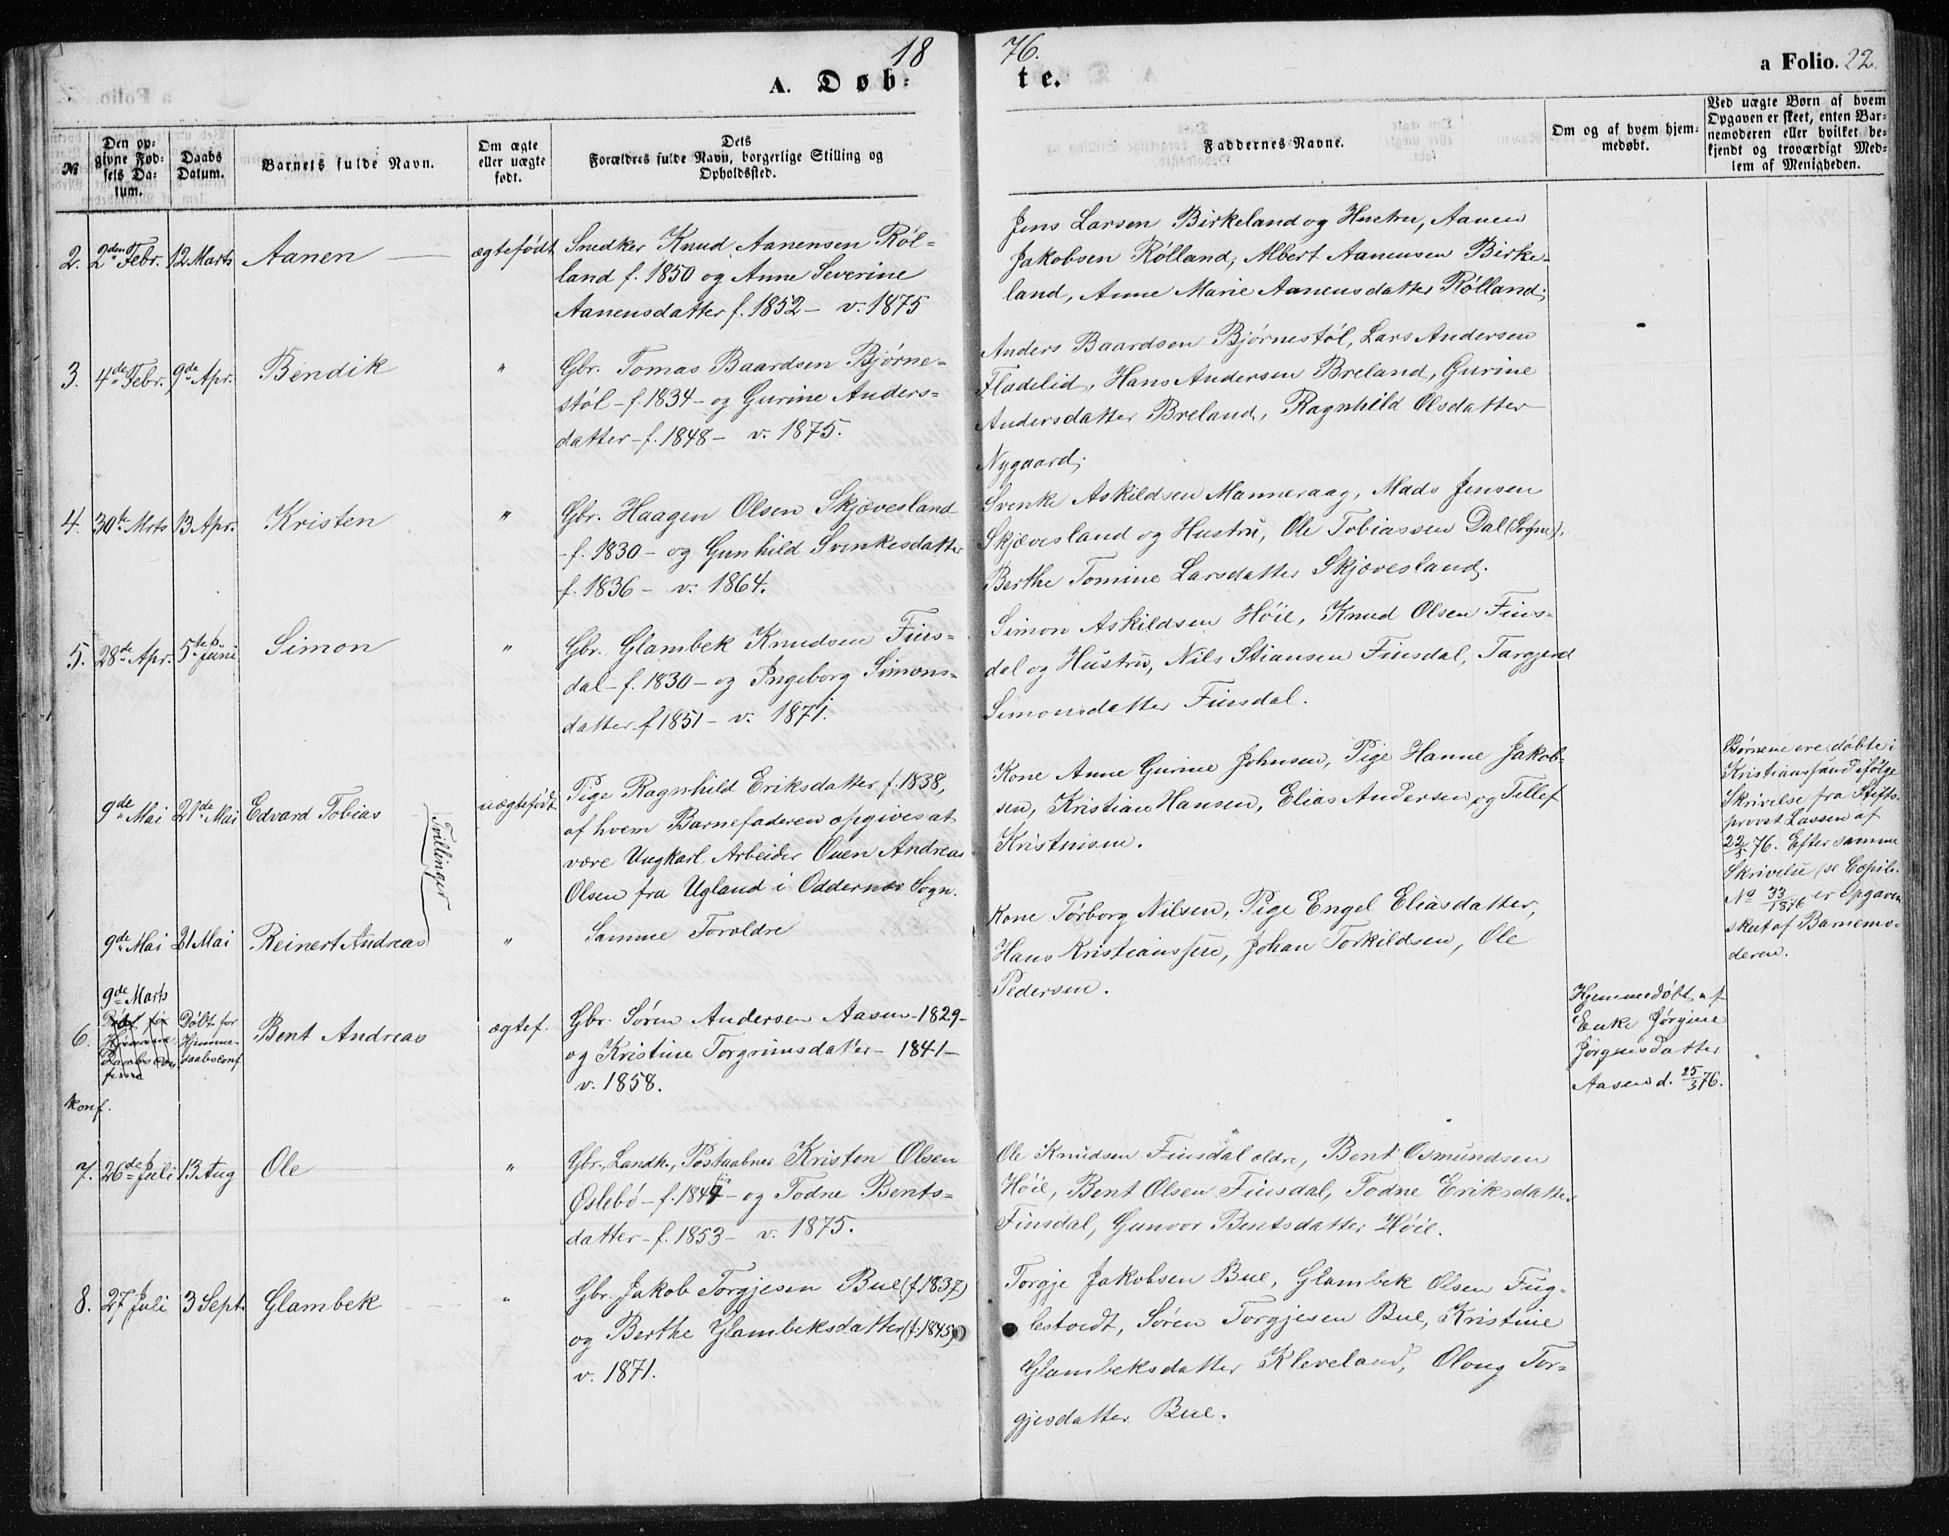 18
76.
A. Døb=
te.
a Folio. 22.
№
Den op=
givne Fød=
sels Da=
tum.
Daabs
Datum.
Barnets fulde Navn.
Om ægte
eller uægte
født.
Dets
Forældres fulde Navn, borgerlige Stilling og
Opholdssted.
Faddernes Navne.
Om og af hvem hjem=
medøbt.
Ved uægte Børn af hvem
Opgaven er skeet, enten Bar=
nemoderen eller hvilket be=
kjendt og troværdigt Med=
lem af Menigheden.
2. 2den Febr. 12 Marts Aanen ægtefødt Snedker Knud Aanensen Røl=
land f. 1850 og Anne Severine
Aanensdatter f. 1852 - v. 1875
Jens Larsen Birkeland og Hustru, Aanen
Jakobsen Rølland, Albert Aanensen Birke=
land, Anne Marie Aanensdatter Rølland;
3. 4de Febr. 9de Apr. Bendik " Gbr. Tomas Baardsen Bjørne=
støl - f. 1834 - og Gurine Anders=
datter - f. 1848 - v. 1875.
Anders Baardsen Bjørnestøl, Lars Andersen
Fladelid, Hans Andersen Breland, Gurine
Andersdatter Breland, Ragnhild Olsdatter
Nygaard;
4. 30te Mrts 13 Apr. Kristen " Gbr. Haagen Olsen Skjævesland
- f. 1830 - og Gunhild Svenkesdatter
f. 1836 - v. 1864.
Svenke Askildsen Manneraag, Mads Jensen
Skjævesland og Hustru, Ole Tobiassen Dal (Sogne),
Berthe Tomine Larsdatter Skjævesland;
5. 28de Apr. 5te Juni Simon " Gbr. Glambek Knudsen Fins=
dal - f. 1830 - og Ingeborg Simons=
datter - f 1851 - v. 1871.
Simon Askildsen Høie, Knud Olsen Fins=
dal og Hustru, Nils Stiansen Finsdal, Targjerd
Simonsdatter Finsdal.
9de Mai 21de Mai Edvard Tobias uægtefødt Pige Ragnhild Eriksdatter f. 1838,
af hvem Barnefaderen opgives at
være Ungkarl Arbeider Ouen Andreas
Olsen fra Ugland i Oddernes Sogn.
Tvillinger
Kone Anne Gurine Johnsen, Pige Hanne Jakob=
sen, Kristian Hansen, Elias Andersen og Tellef
Kristnisen.
Børnene ere døbte i
Kristianssand ifølge
Skrivelse fra Stifts=
provst Lassen af
22/5. 76. Efter samme
Skrivelse (se Copib.
No 33/1876 er Opgaven
skeet af Barnemo=
deren.
9de Mai 21 Mai Reinert Andreas " Samme Foroldre
Kone Tørborg Nilsen, Pige Engel Eliasdatter,
Hans Kristianssen, Johan Torkildsen, Ole
Pedersen.
6. 9de Marts Døbt for
Hjemme-
daabsconf Bent Andreas ægtef. Gbr. Søren Andersen Aasen - 1829 -
og Kristine Torgrimsdatter - 1841 -
v. 1858.
konf.
Hjemmedøbt af
Enke Jørgine
Jørgensdatter
Aasen d. 25/3 76.
7. 26de Juli 13 Aug Ole " Gbr., Landh., Postaabner Kristen Olsen
Øslebø - f. 1844 - og Todne Bents=
datter - f. 1853 - v. 1875.
Ole Knudsen Finsdal ældre, Bent Osmundsen
Høie, Bent Olsen Finsdal, Todne Eriksdatter
Finsdal, Gunvor Bentsdatter Høie.
8. 27 Juli 3 Sept. Glambek " Gbr. Jakob Torgjesen Bue (f. 1837)
og Berthe Glambeksdatter (f. 1845)
v. 1871.
Torgje Jakobsen Bue, Glambek Olsen Fug=
lestvedt, Søren Torgjesen Bue, Kristine
Glambeksdatter Kleveland, Oloug Tor=
gjesdatter Bue.